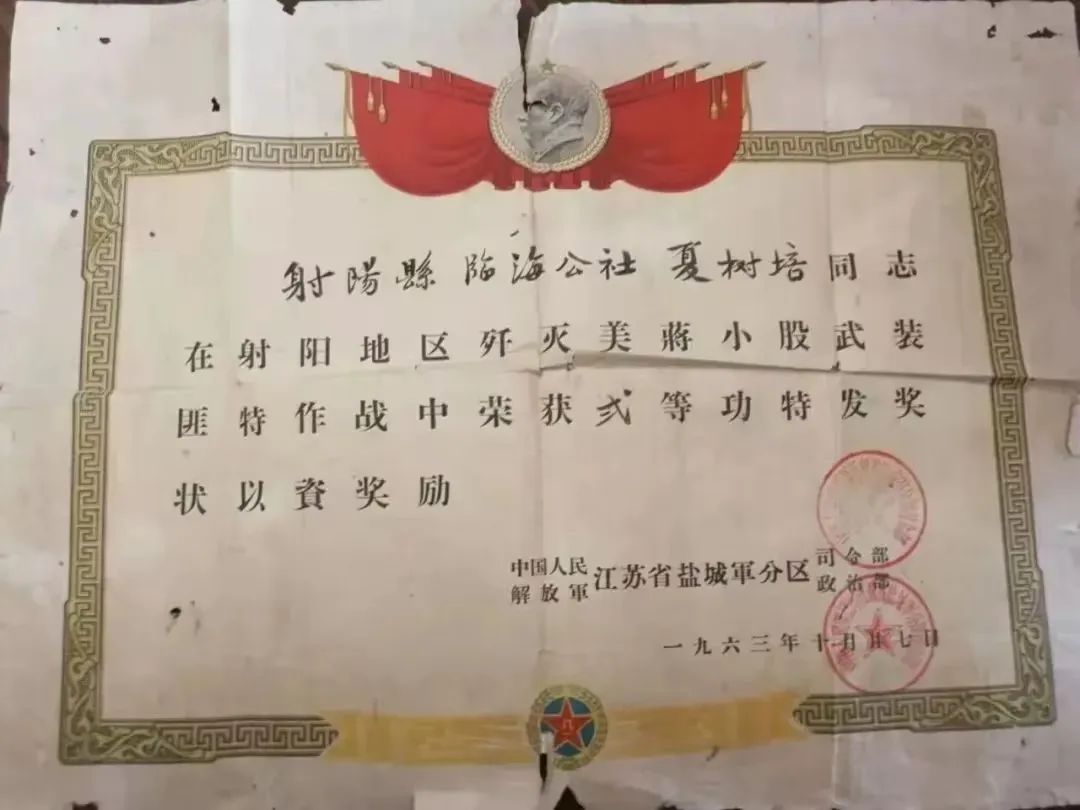 射陽縣 临海公社 夏树培同志
在射阳地区歼灭美蔣小股武装
匪特作战中荣获弍等功特发奖
状以資奖励
中国人民解放軍江苏省盐城軍分区司令部政治部
一九六三年十月廿七日
八一